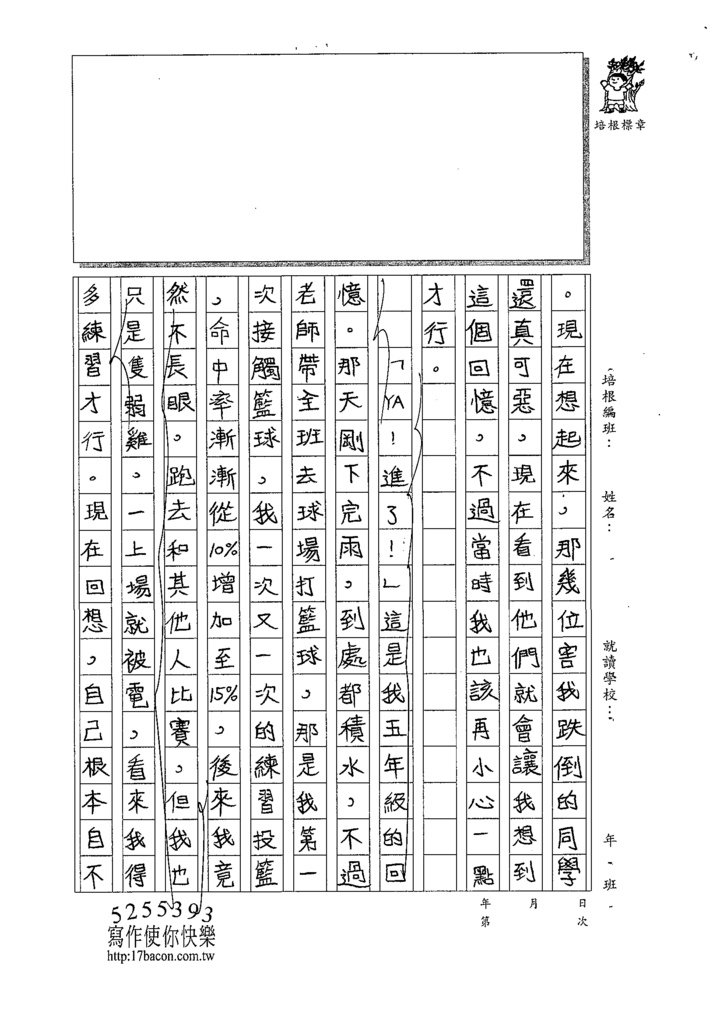 培根標章
（培根編班：
姓名：
就讀學校：
年
班
月
日
年
第
次
。現在想起來，那幾位害我跌倒的同學
還真可惡。現在看到他們就會讓我想到
這個回憶。不過當時我也該再小心一點
才行。
「YA！進了！」這是我五年級的回
憶。那天剛下完雨，到處都積水，不過
老師帶全班去球場打籃球，那是我第一
次接觸籃球。我一次又一次的練習投籃
，命中率漸漸從10%增加至15%。後來我竟
然不長眼，跑去和其他人比賽。但我也
只是隻弱雞，一上場就被電，看來我得
多練習才行。現在回想，自己根本自不
5255393
寫作使你快樂
http:17bacon.com.tw